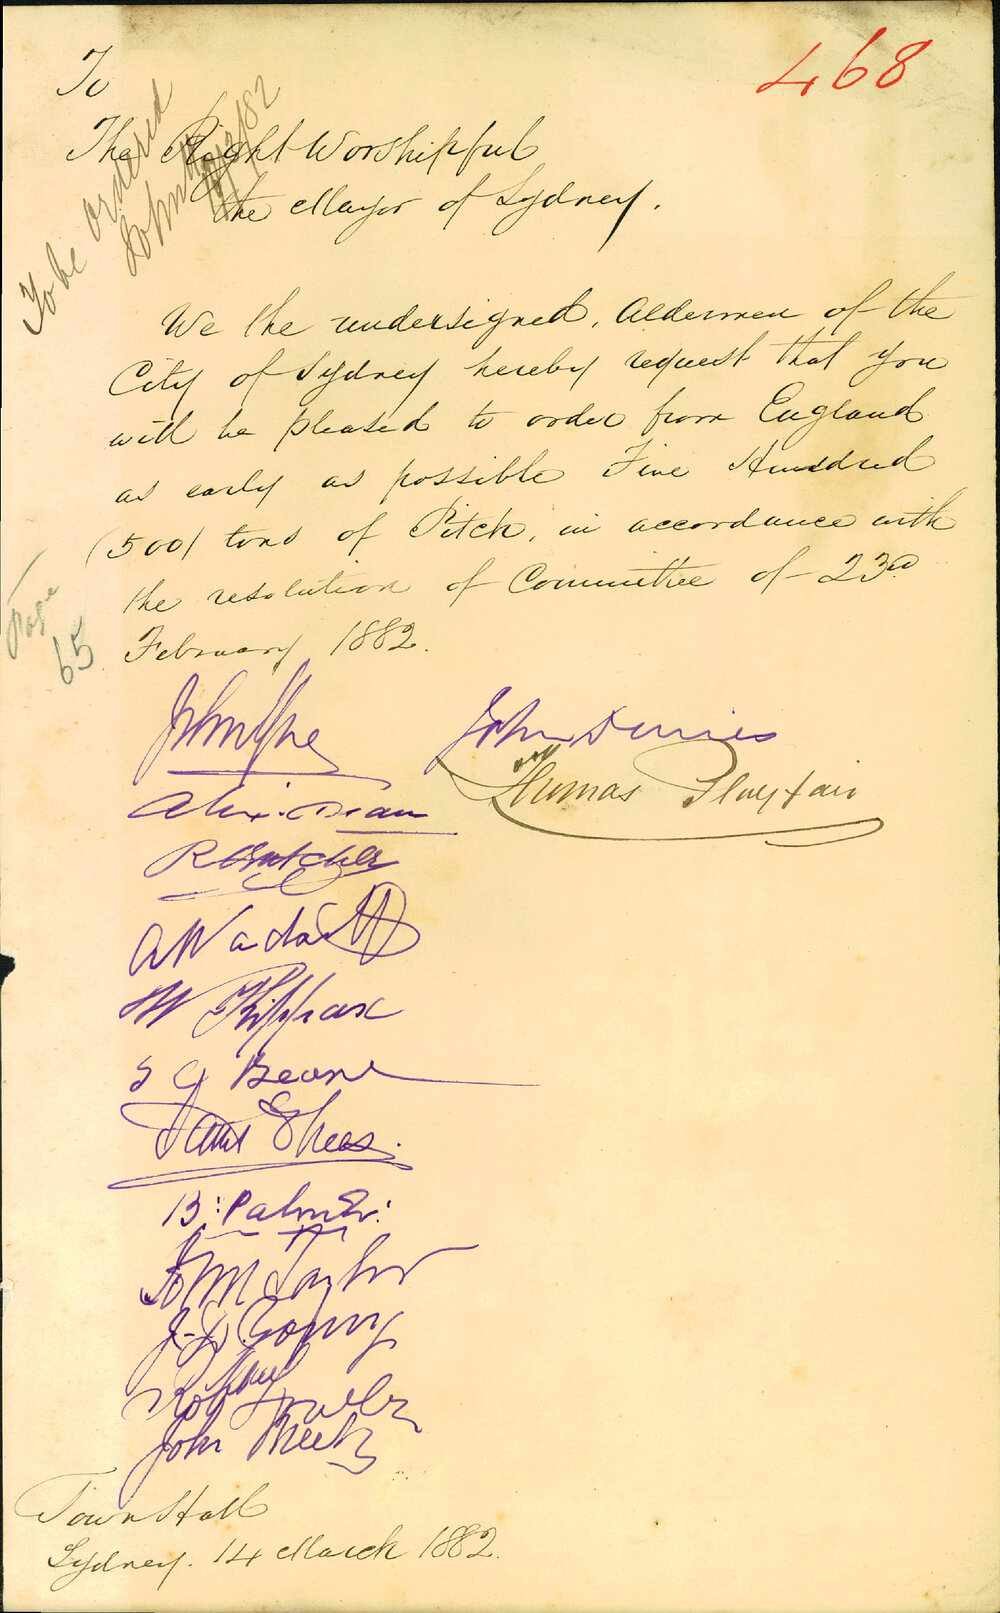 468
To
The Right Worshipful
the Mayor of Sydney.
To be ordered
John
/82
We the undersigned, Aldermen of the
City of Sydney hereby request that you
will be pleased to order from England
as early as possible Five Hundred
(500) tons of Pitch, in accordance with
the resolution of Committee of 23rd
February 1882.
Page
65
John Davies
Thomas Playfair
Alex. Dean
R Butcher
W Kippax
S G Beare
B: Palmer:
John Taylor
J. D. Young
Robt Fowler
John Meeks
Town Hall
Sydney. 14 March 1882.